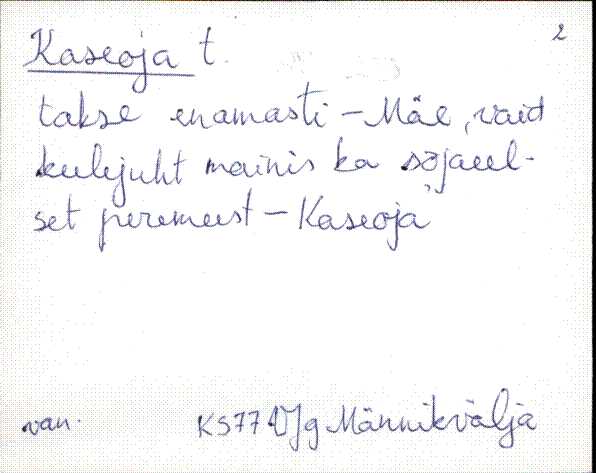 2
Kaseoja t.
takse enamasti - Mäe, vaid
keelejuht mainis ka sõjaeel-
set peremeest - Kaseoja
van. KS77 VJg Männikvälja